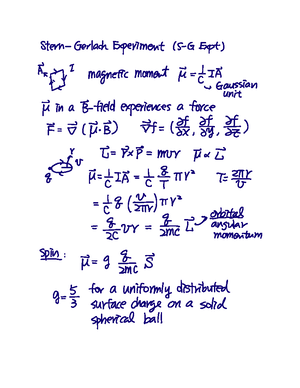 Stern-Gerlach Experiment (S-G Expt)
A⃗ I magnetic moment μ⃗ = 1/c I A⃗
Gaussian unit
μ⃗ in a B⃗-field experiences a force
F⃗ = ∇⃗ (μ⃗·B⃗) ∇⃗f = (∂f/∂x, ∂f/∂y, ∂f/∂z)
L⃗ = r⃗×p⃗ = mvr μ⃗ ∝ L⃗
q r v
μ⃗ = 1/c I A⃗ = 1/c q/T πr² T = 2πr/v
= 1/c q (v/2πr) πr²
= q/2c vr = q/2mc L⃗ → orbital angular momentum
Spin: μ⃗ = g q/2mc S⃗
g = 5/3 for a uniformly distributed
surface charge on a solid
spherical ball